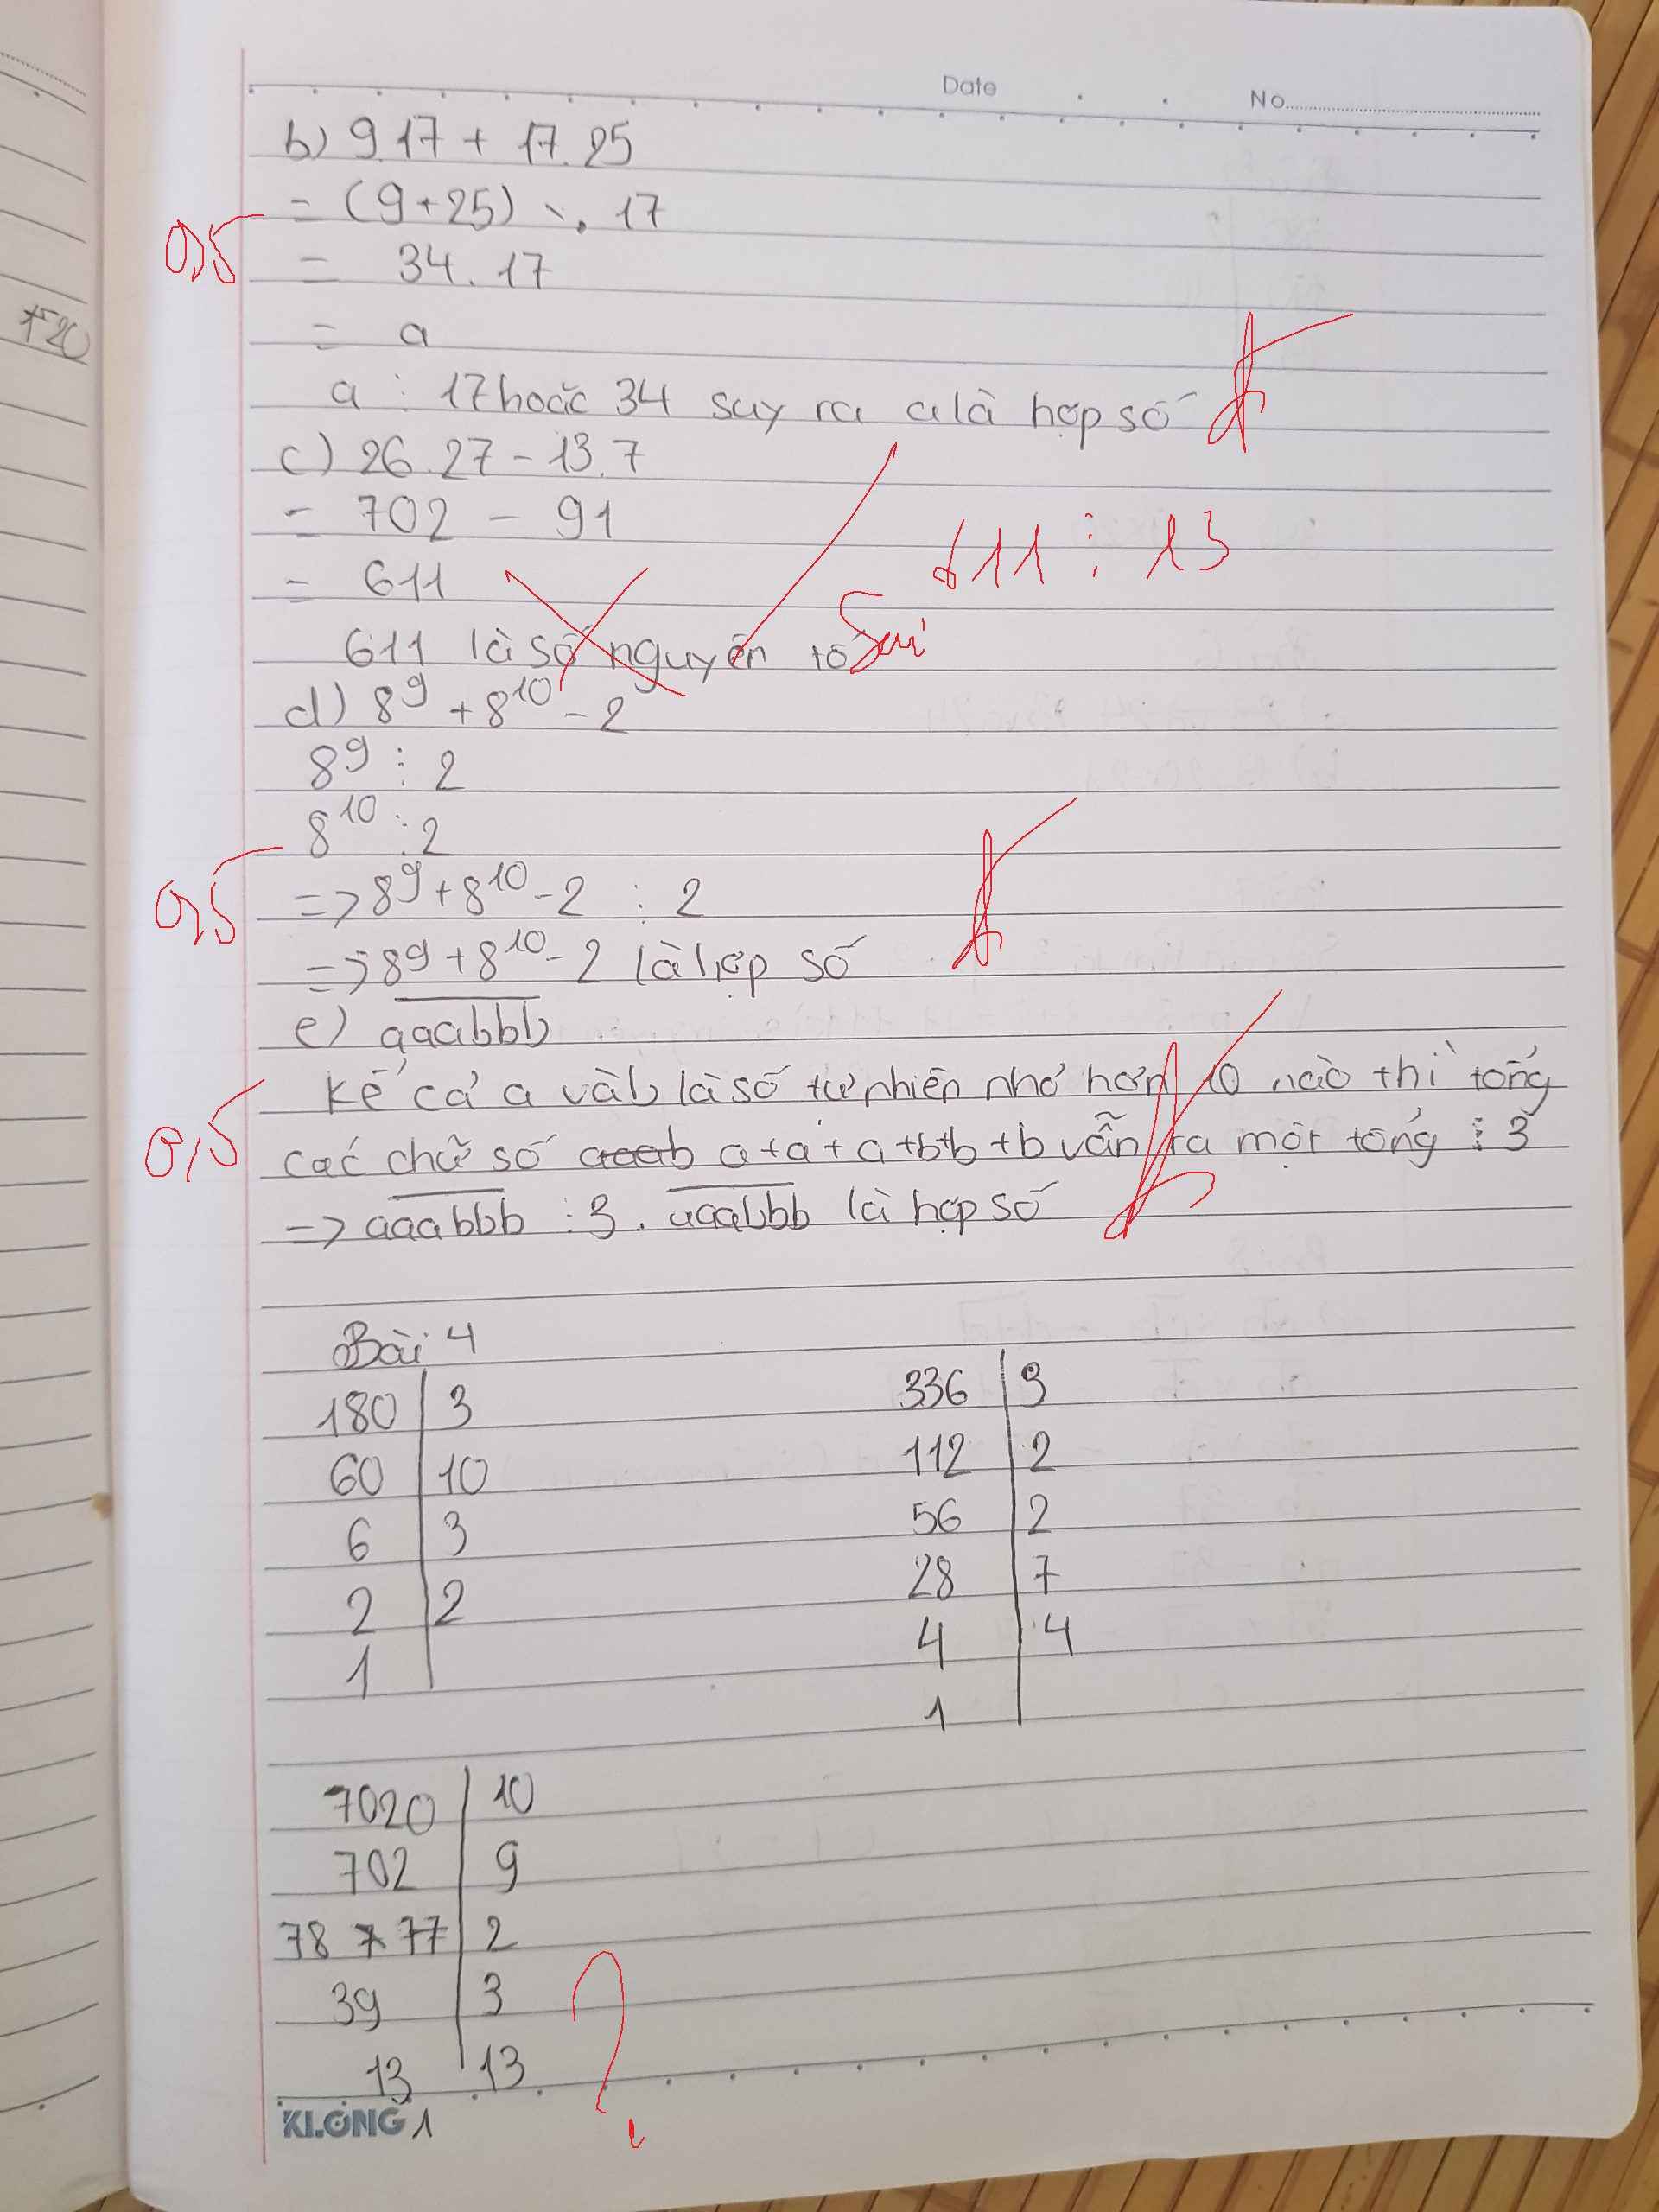 Date No.
b) 9.17 + 17.25
= (9+25) . 17
0,5
= 34.17
= a
720
a ⋮ 17 hoặc 34 suy ra a là hợp số Đ
c) 26.27 - 13.7
= 702 - 91
611 ⋮ 13
= 611
611 là số nguyên tố Sai
d) 8⁹ + 8¹⁰ - 2
8⁹ ⋮ 2
8¹⁰ ⋮ 2
0,5 => 8⁹ + 8¹⁰ - 2 ⋮ 2 Đ
=> 8⁹ + 8¹⁰ - 2 là hợp số
e) aaabbb
Kể cả a và b là số tự nhiên nhỏ hơn 10 nào thì tổng
0,5 các chữ số a+a+a+b+b+b vẫn ra một tổng ⋮ 3
=> aaabbb ⋮ 3. aaabbb là hợp số Đ
Bài 4
180 | 3 336 | 3
60 | 10 112 | 2
6 | 3 56 | 2
2 | 2 28 | 7
1 4 | 4
1
7020 | 10
702 | 9
78 7 77 | 2
39 | 3
13 | 13 ?
KLONG 1